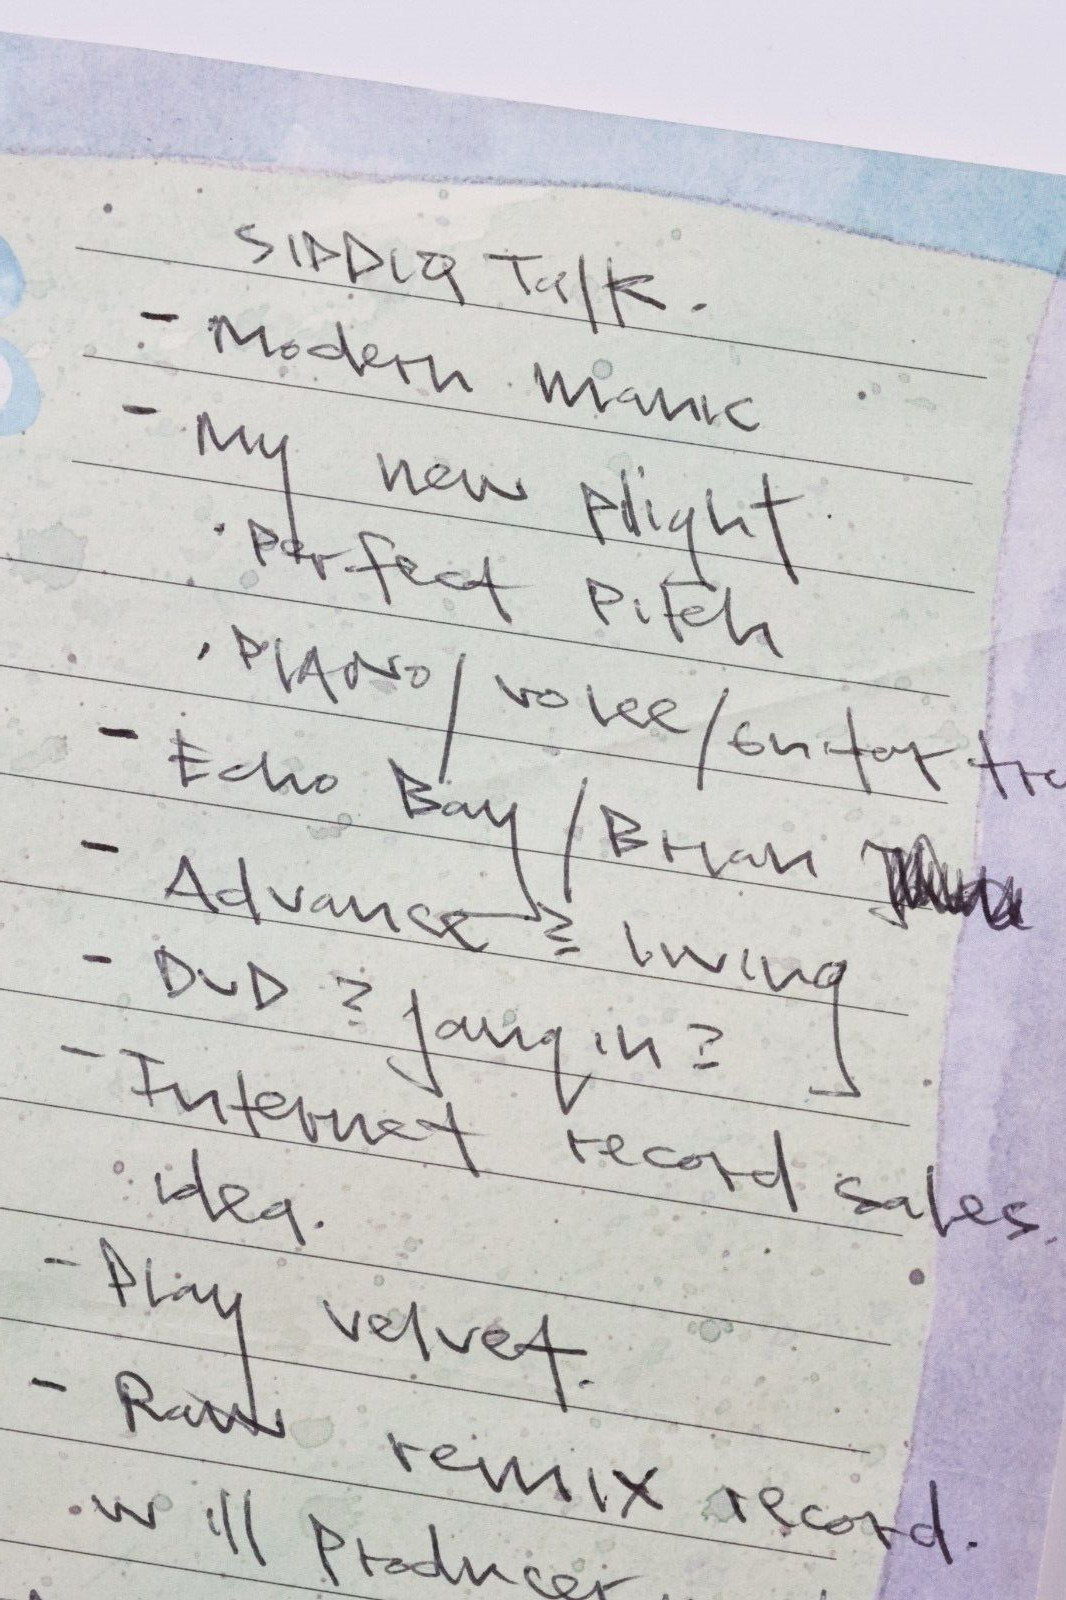 SIDDIQ Talk.
- Modern manic
- My new plight
· Perfect Pitch
· PIANO/voice/Guitar
- Echo Bay / Brian
- Advance ? living
- DVD ? Jonqin?
- Internet record sales.
idea.
- Play velvet.
- Raw remix record.
· will Producer